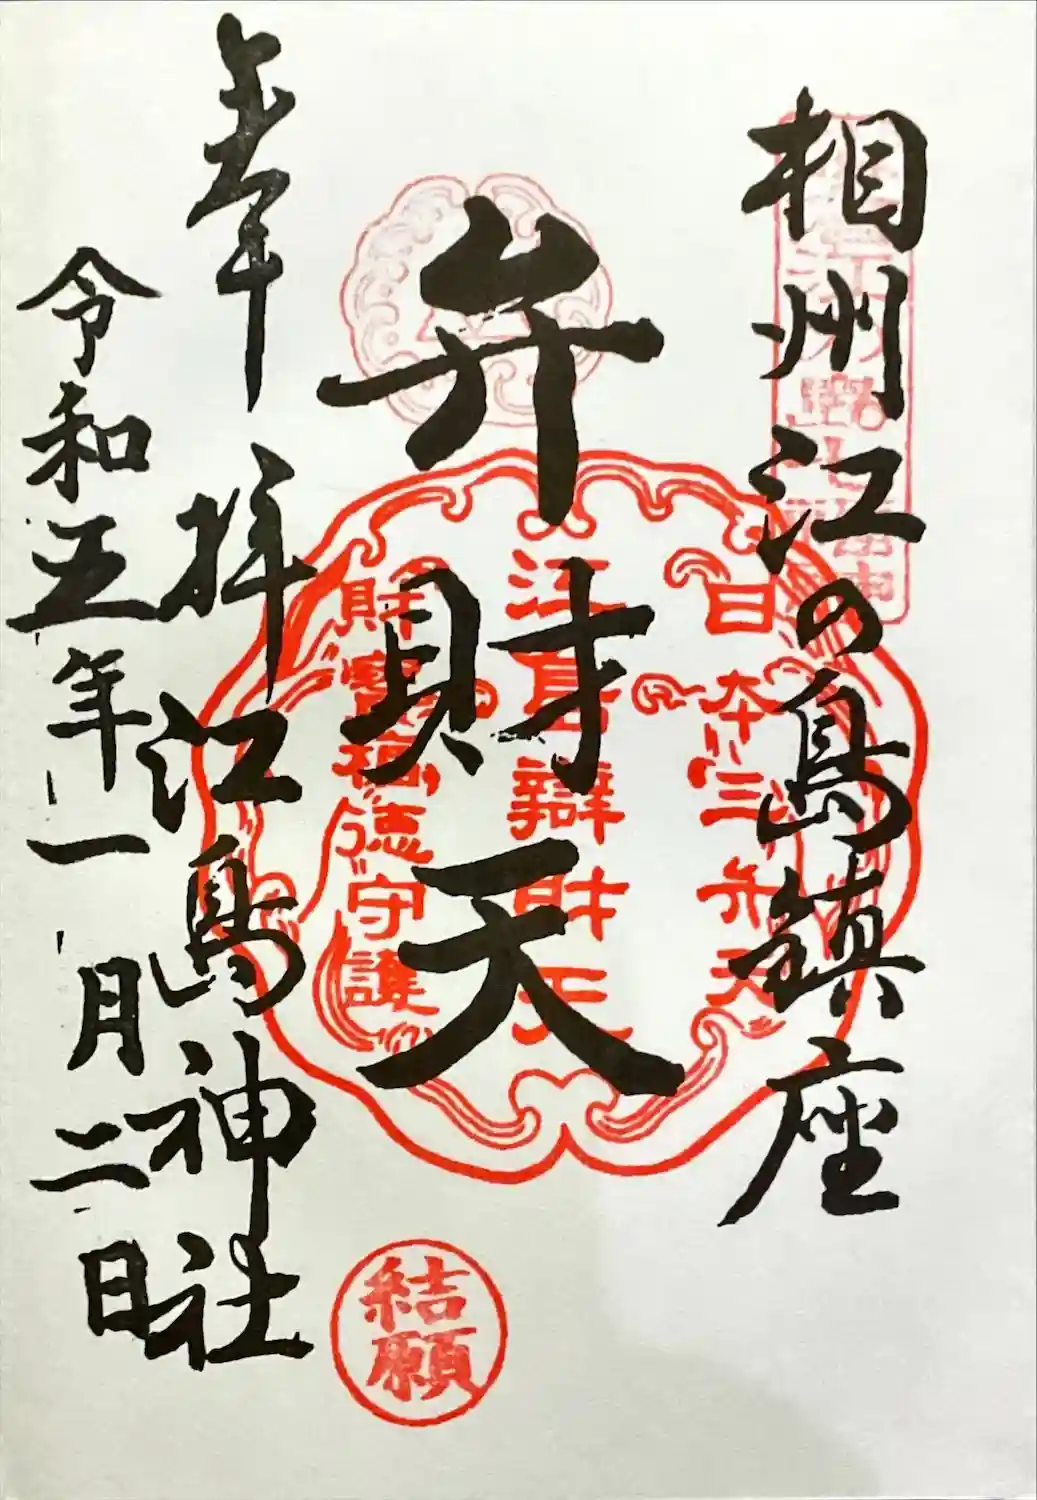 相州江の島鎮座
弁財天
奉拝 江島神社
令和五年一月二日
日本三弁天
江島辯財天
財寳福徳守護
結願